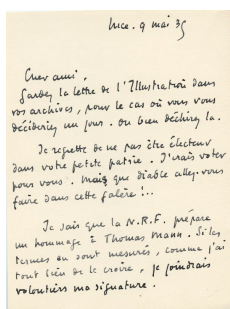 Nice. 9 mai 35
Cher ami,
Gardez la lettre de l'Illustration dans
vos archives, pour le cas où vous vous
décideriez un jour. Ou bien déchirez-la.
Je regrette de ne pas être électeur
dans votre petite patrie. J'irais voter
pour vous. Mais que diable allez-vous
faire dans cette galère !..
Je sais que la N.R.F. prépare
un hommage à Thomas Mann. Si les
termes en sont mesurés, comme j'ai
tout lieu de le croire, je joindrais
volontiers ma signature.